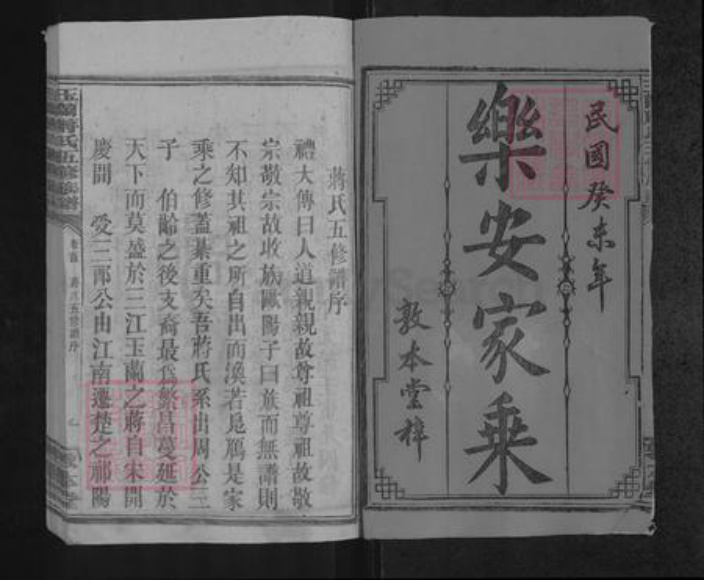 民國癸未年
樂安家乘
敦本堂梓
蔣氏五修譜序
禮大傳曰人道親親故尊祖尊祖故敬
宗敬宗故收族歐陽子曰族而無譜則
不知其祖之所自出而渙若鳧鴈是家
乘之修蓋綦重矣吾蔣氏系出周公三
子 伯齡之後支裔最為繁昌蔓延於
天下而莫盛於三江玉蘭之蔣自宋開
慶間 愛三郎公由江南遷楚之祁陽
玉蘭蔣氏五修族譜
卷首 蔣氏五修譜序
敦本堂